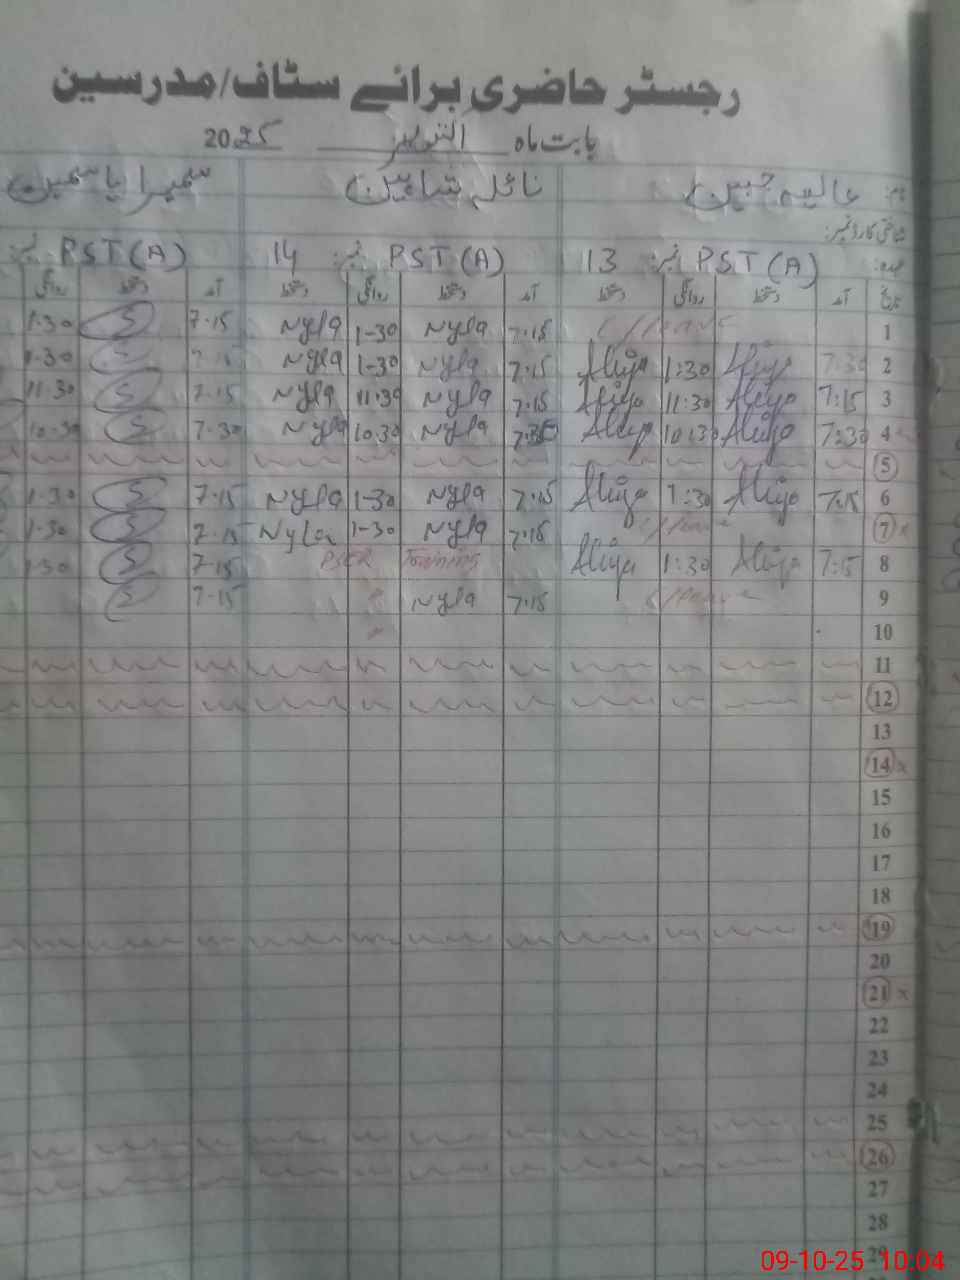 رجسٹر حاضری برائے سٹاف/مدرسین
بابت ماہ اکتوبر 2025
نام: عالیہ جبین نائلہ شاہین سمیرا یاسمین
شناختی کارڈ نمبر:
عہدہ: PST (A) نمبر: 13 PST (A) نمبر: 14 PST (A) نمبر:
تاریخ آمد دستخط روانگی دستخط آمد دستخط روانگی دستخط آمد دستخط روانگی
1 C/leave 7.15 Nyla 1-30 Nyla 7.15 S 1.30
2 7:30 Aliya 1:30 Aliya 7.15 Nyla 1-30 Nyla 7.15 S 1.30
3 7:15 Aliya 11:30 Aliya 7.15 Nyla 11.30 Nyla 7.15 S 11.30
4 7:30 Aliya 10:30 Aliya 7.30 Nyla 10.30 Nyla 7.30 S 10.30
5
6 7:15 Aliya 1:30 Aliya 7.15 Nyla 1-30 Nyla 7.15 S 1.30
7 x C/leave 7.15 Nyla 1-30 Nyla 7.15 S 1.30
8 7:15 Aliya 1:30 Aliya Training 7.15 S 1.30
9 C/leave 7.15 Nyla 7.15 S
10
11
12
13
14 x
15
16
17
18
19
20
21 x
22
23
24
25
26
27
28
29
09-10-25 10:04